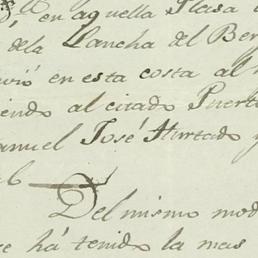 en aquella Plasa
de la Lancha del Ber
vió en esta costa al
endo al citado Puerto
anuel José Hurtado y
Del mismo mod
se há tenido la mas